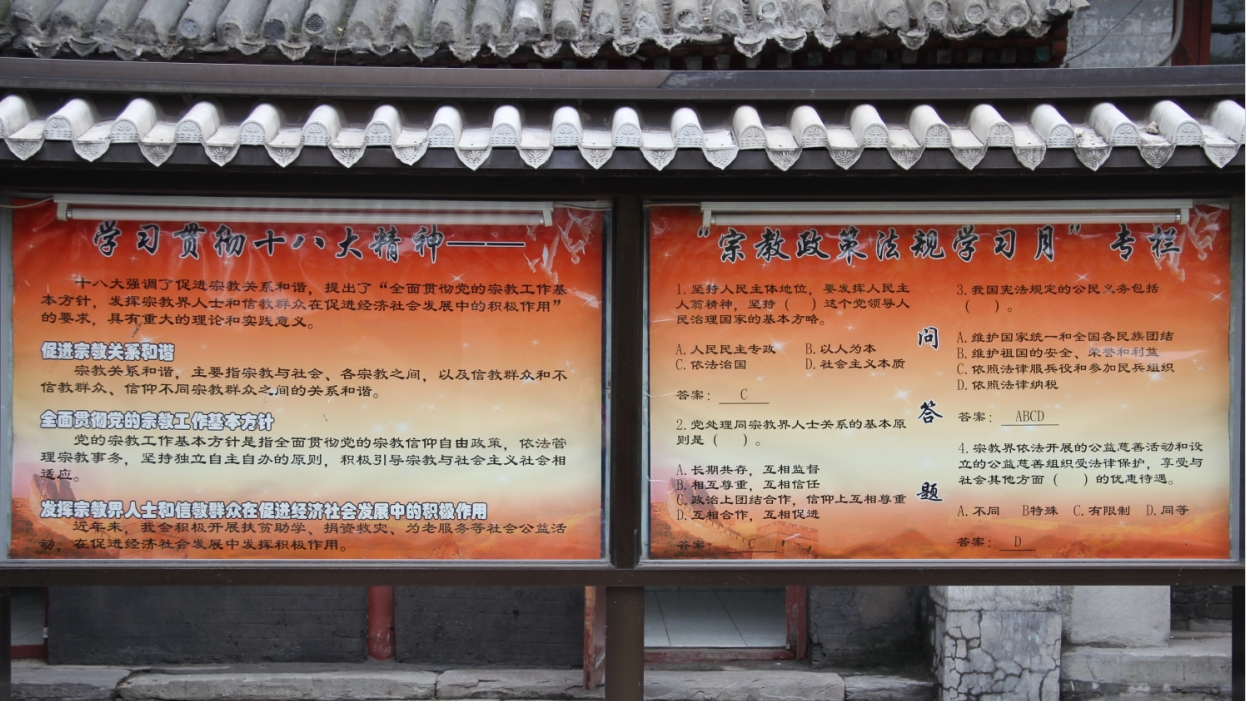 学习贯彻十八大精神——
十八大强调了促进宗教关系和谐，提出了“全面贯彻党的宗教工作基
本方针，发挥宗教界人士和信教群众在促进经济社会发展中的积极作用”
的要求，具有重大的理论和实践意义。
促进宗教关系和谐
宗教关系和谐，主要指宗教与社会、各宗教之间，以及信教群众和不
信教群众、信仰不同宗教群众之间的关系和谐。
全面贯彻党的宗教工作基本方针
党的宗教工作基本方针是指全面贯彻党的宗教信仰自由政策，依法管
理宗教事务，坚持独立自主自办的原则，积极引导宗教与社会主义社会相
适应。
发挥宗教界人士和信教群众在促进经济社会发展中的积极作用
近年来，我会积极开展扶贫助学、捐资救灾、为老服务等社会公益活
动，在促进经济社会发展中发挥积极作用。
“宗教政策法规学习月”专栏
1.坚持人民主体地位，要发挥人民主
人翁精神，坚持（ ）这个党领导人
民治理国家的基本方略。
A.人民民主专政 B.以人为本
C.依法治国 D.社会主义本质
答案：C
2.党处理同宗教界人士关系的基本原
则是（ ）。
A.长期共存，互相监督
B.相互尊重，互相信任
C.政治上团结合作，信仰上互相尊重
D.互相合作，互相促进
答案：C
问
答
题
3.我国宪法规定的公民义务包括
（ ）。
A.维护国家统一和全国各民族团结
B.维护祖国的安全、荣誉和利益
C.依照法律服兵役和参加民兵组织
D.依照法律纳税
答案：ABCD
4.宗教界依法开展的公益慈善活动和设
立的公益慈善组织受法律保护，享受与
社会其他方面（ ）的优惠待遇。
A.不同 B特殊 C.有限制 D.同等
答案：D